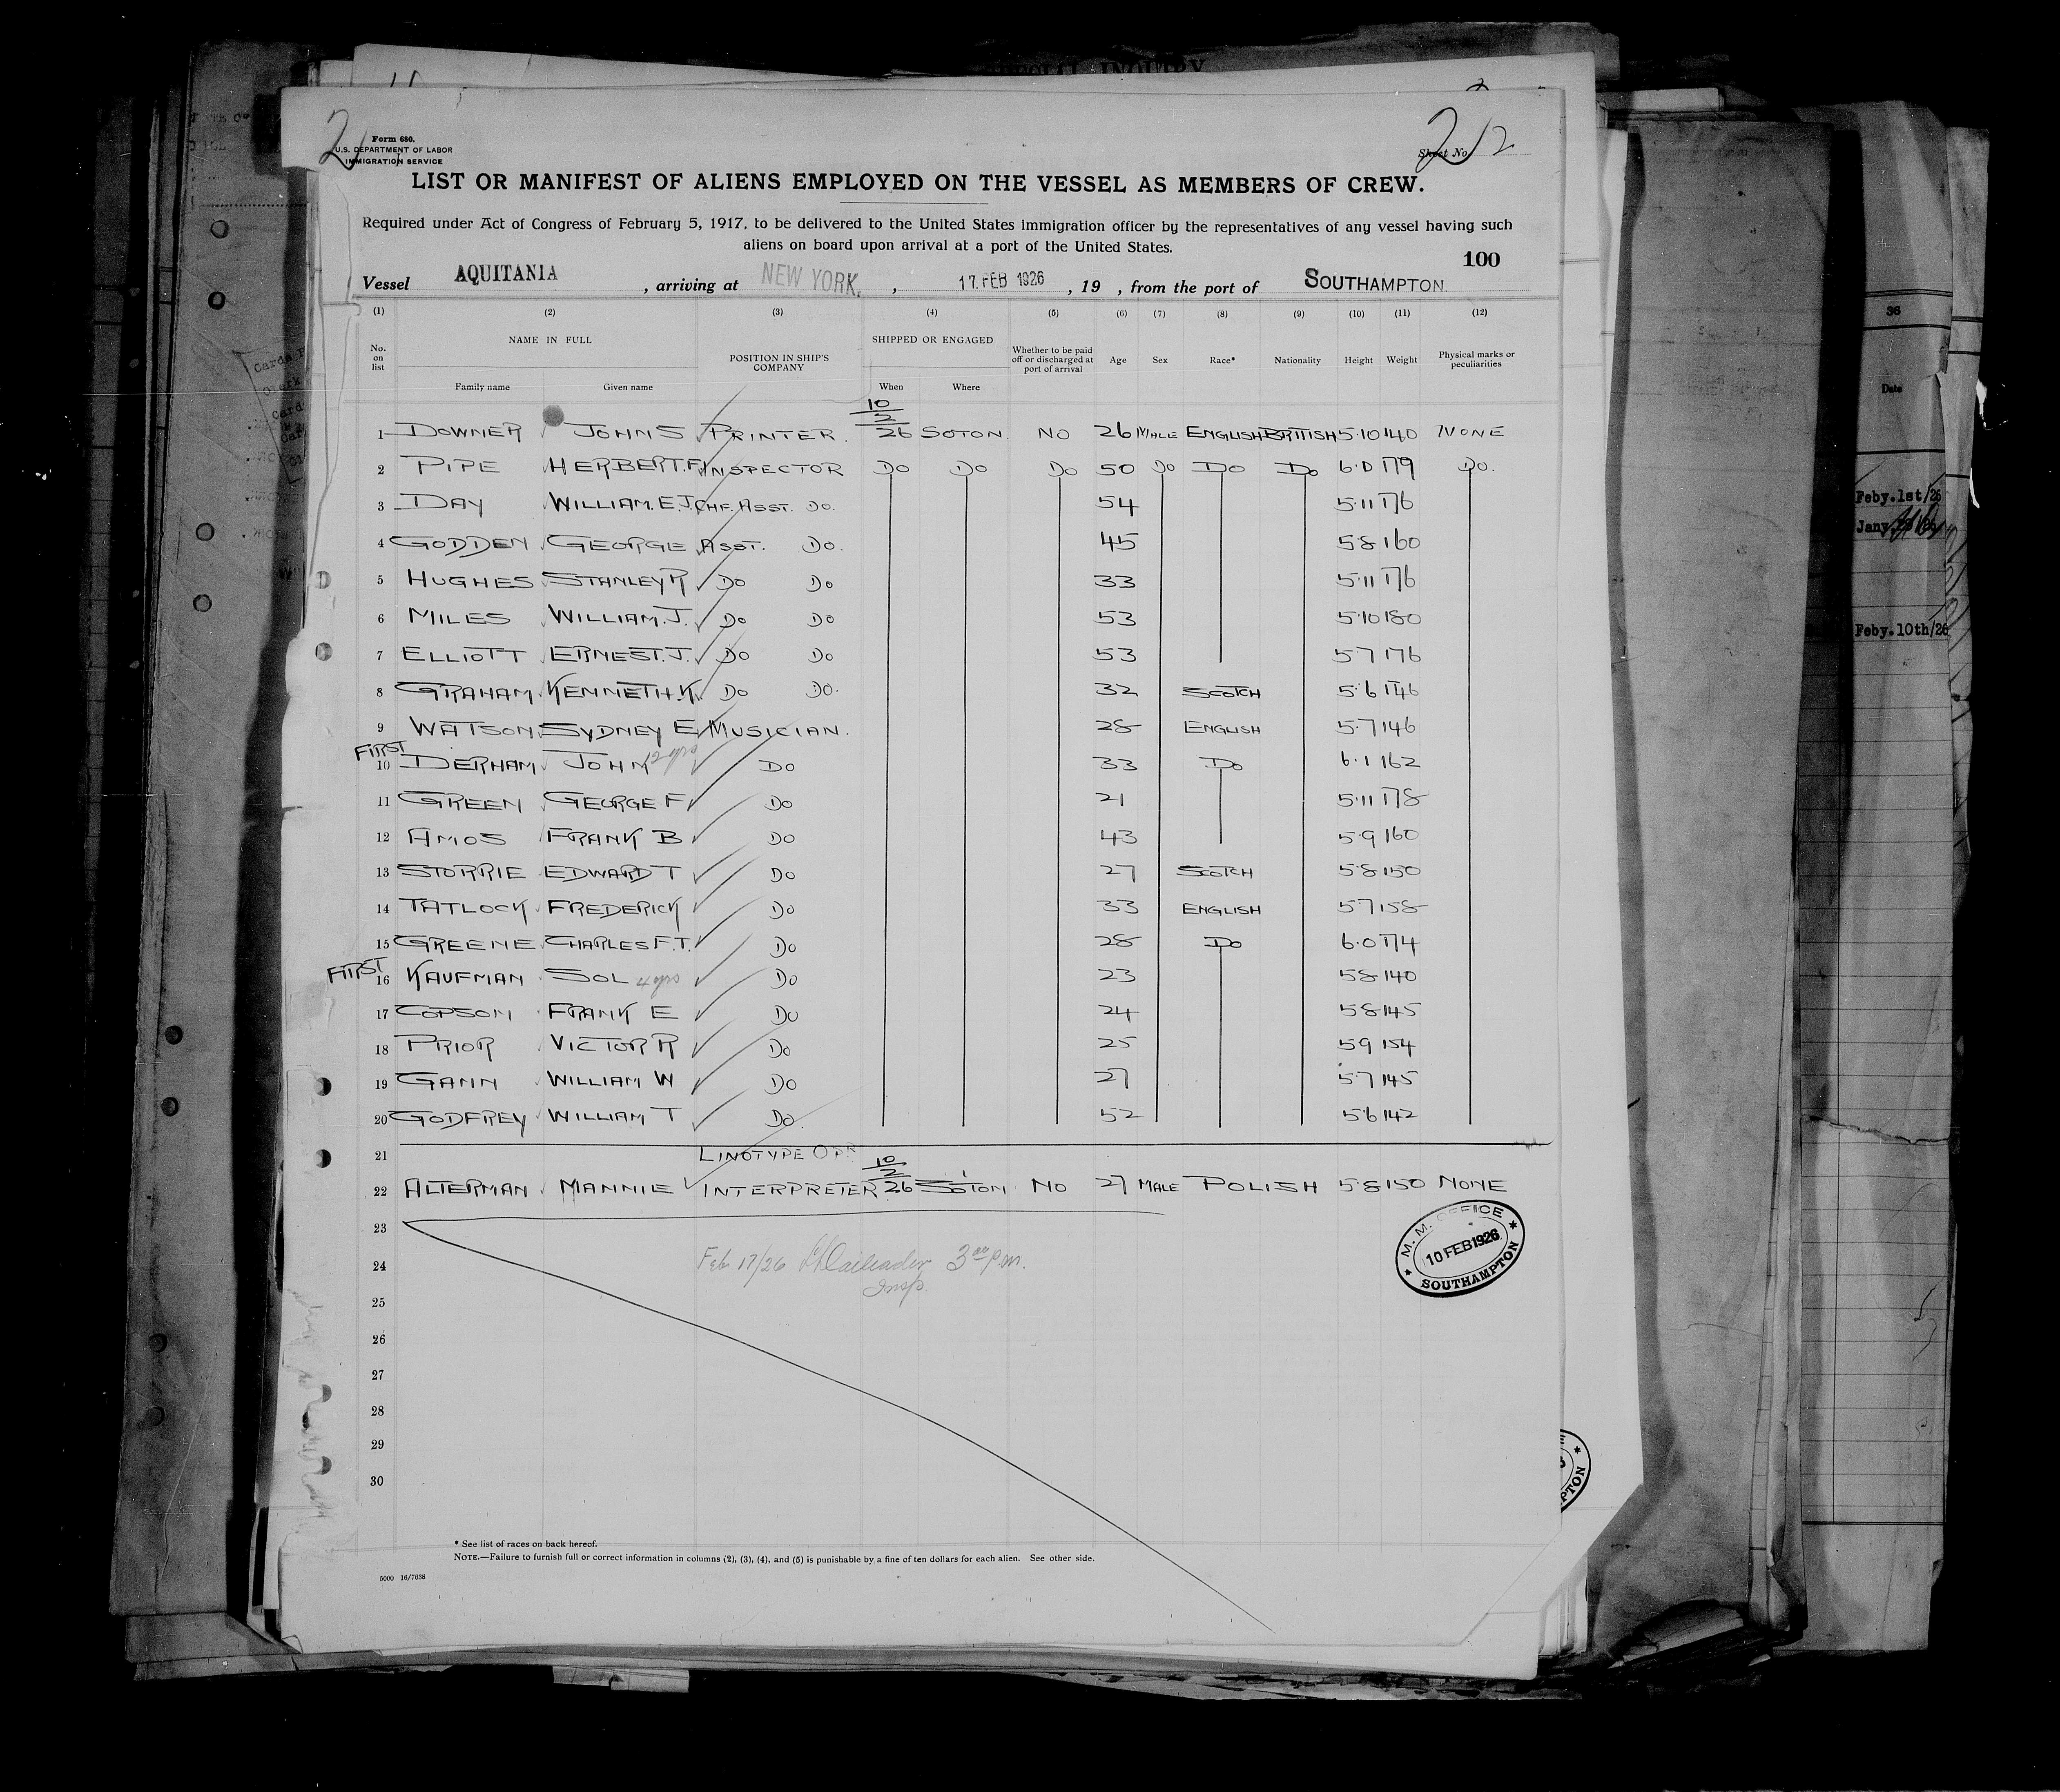 SPECIAL INQUIRY
2
2
12
Form 680.
U.S. DEPARTMENT OF LABOR
IMMIGRATION SERVICE
Sheet No.
LIST OR MANIFEST OF ALIENS EMPLOYED ON THE VESSEL AS MEMBERS OF CREW.
Required under Act of Congress of February 5, 1917, to be delivered to the United States immigration officer by the representatives of any vessel having such
aliens on board upon arrival at a port of the United States.
100
Vessel AQUITANIA , arriving at NEW YORK. , 17 FEB 1926 , 19 , from the port of SOUTHAMPTON.
(1) (2) (3) (4) (5) (6) (7) (8) (9) (10) (11) (12)
No. on list NAME IN FULL POSITION IN SHIP'S COMPANY SHIPPED OR ENGAGED Whether to be paid off or discharged at port of arrival Age Sex Race* Nationality Height Weight Physical marks or peculiarities
Family name Given name When Where
1 DOWNER JOHN S PRINTER. 10/2 26 SOTON. NO 26 MALE ENGLISH BRITISH 5.10 140 NONE
2 PIPE HERBERT.F. INSPECTOR DO DO DO 50 DO DO DO 6.0 179 DO.
3 DAY WILLIAM.E.J. CHF. ASST. DO. 54 5.11 176
4 GODDEN GEORGE ASST. DO. 45 5.8 160
5 HUGHES STANLEY R DO DO 33 5.11 176
6 MILES WILLIAM.J. DO DO 53 5.10 180
7 ELLIOTT ERNEST.J. DO DO 53 5.7 176
8 GRAHAM KENNETH.K. DO DO. 32 SCOTCH 5.6 146
9 WATSON SYDNEY E MUSICIAN. 28 ENGLISH 5.7 146
FIRST
10 DERHAM JOHN DO 33 DO 6.1 162
11 GREEN GEORGE F DO 21 5.11 178
12 AMOS FRANK B DO 43 5.9 160
13 STORRIE EDWARD T DO 27 SCOTCH 5.8 150
14 TATLOCK FREDERICK DO 33 ENGLISH 5.7 158
15 GREENE CHARLES F.T. DO 28 DO 6.0 174
FIRST
16 KAUFMAN SOL 4 yrs DO 23 5.8 140
17 COPSON FRANK E DO 24 5.8 145
18 PRIOR VICTOR R DO 25 5.9 154
19 GANN WILLIAM W DO 27 5.7 145
20 GODFREY WILLIAM T DO. 52 5.6 142
21 LINOTYPE OPR
22 ALTERMAN MANNIE INTERPRETER 10/2 26 SOTON NO 27 MALE POLISH 5.8 150 NONE
23
24 Feb 17/26 3 00 p.m.
Insp.
25
26
27
28
29
30
M. M. OFFICE
10 FEB 1926
SOUTHAMPTON
* See list of races on back hereof.
NOTE.—Failure to furnish full or correct information in columns (2), (3), (4), and (5) is punishable by a fine of ten dollars for each alien. See other side.
5000 16/7638
36
Date
Feby.1st/26
Jany.
Feby.10th/26
PTON